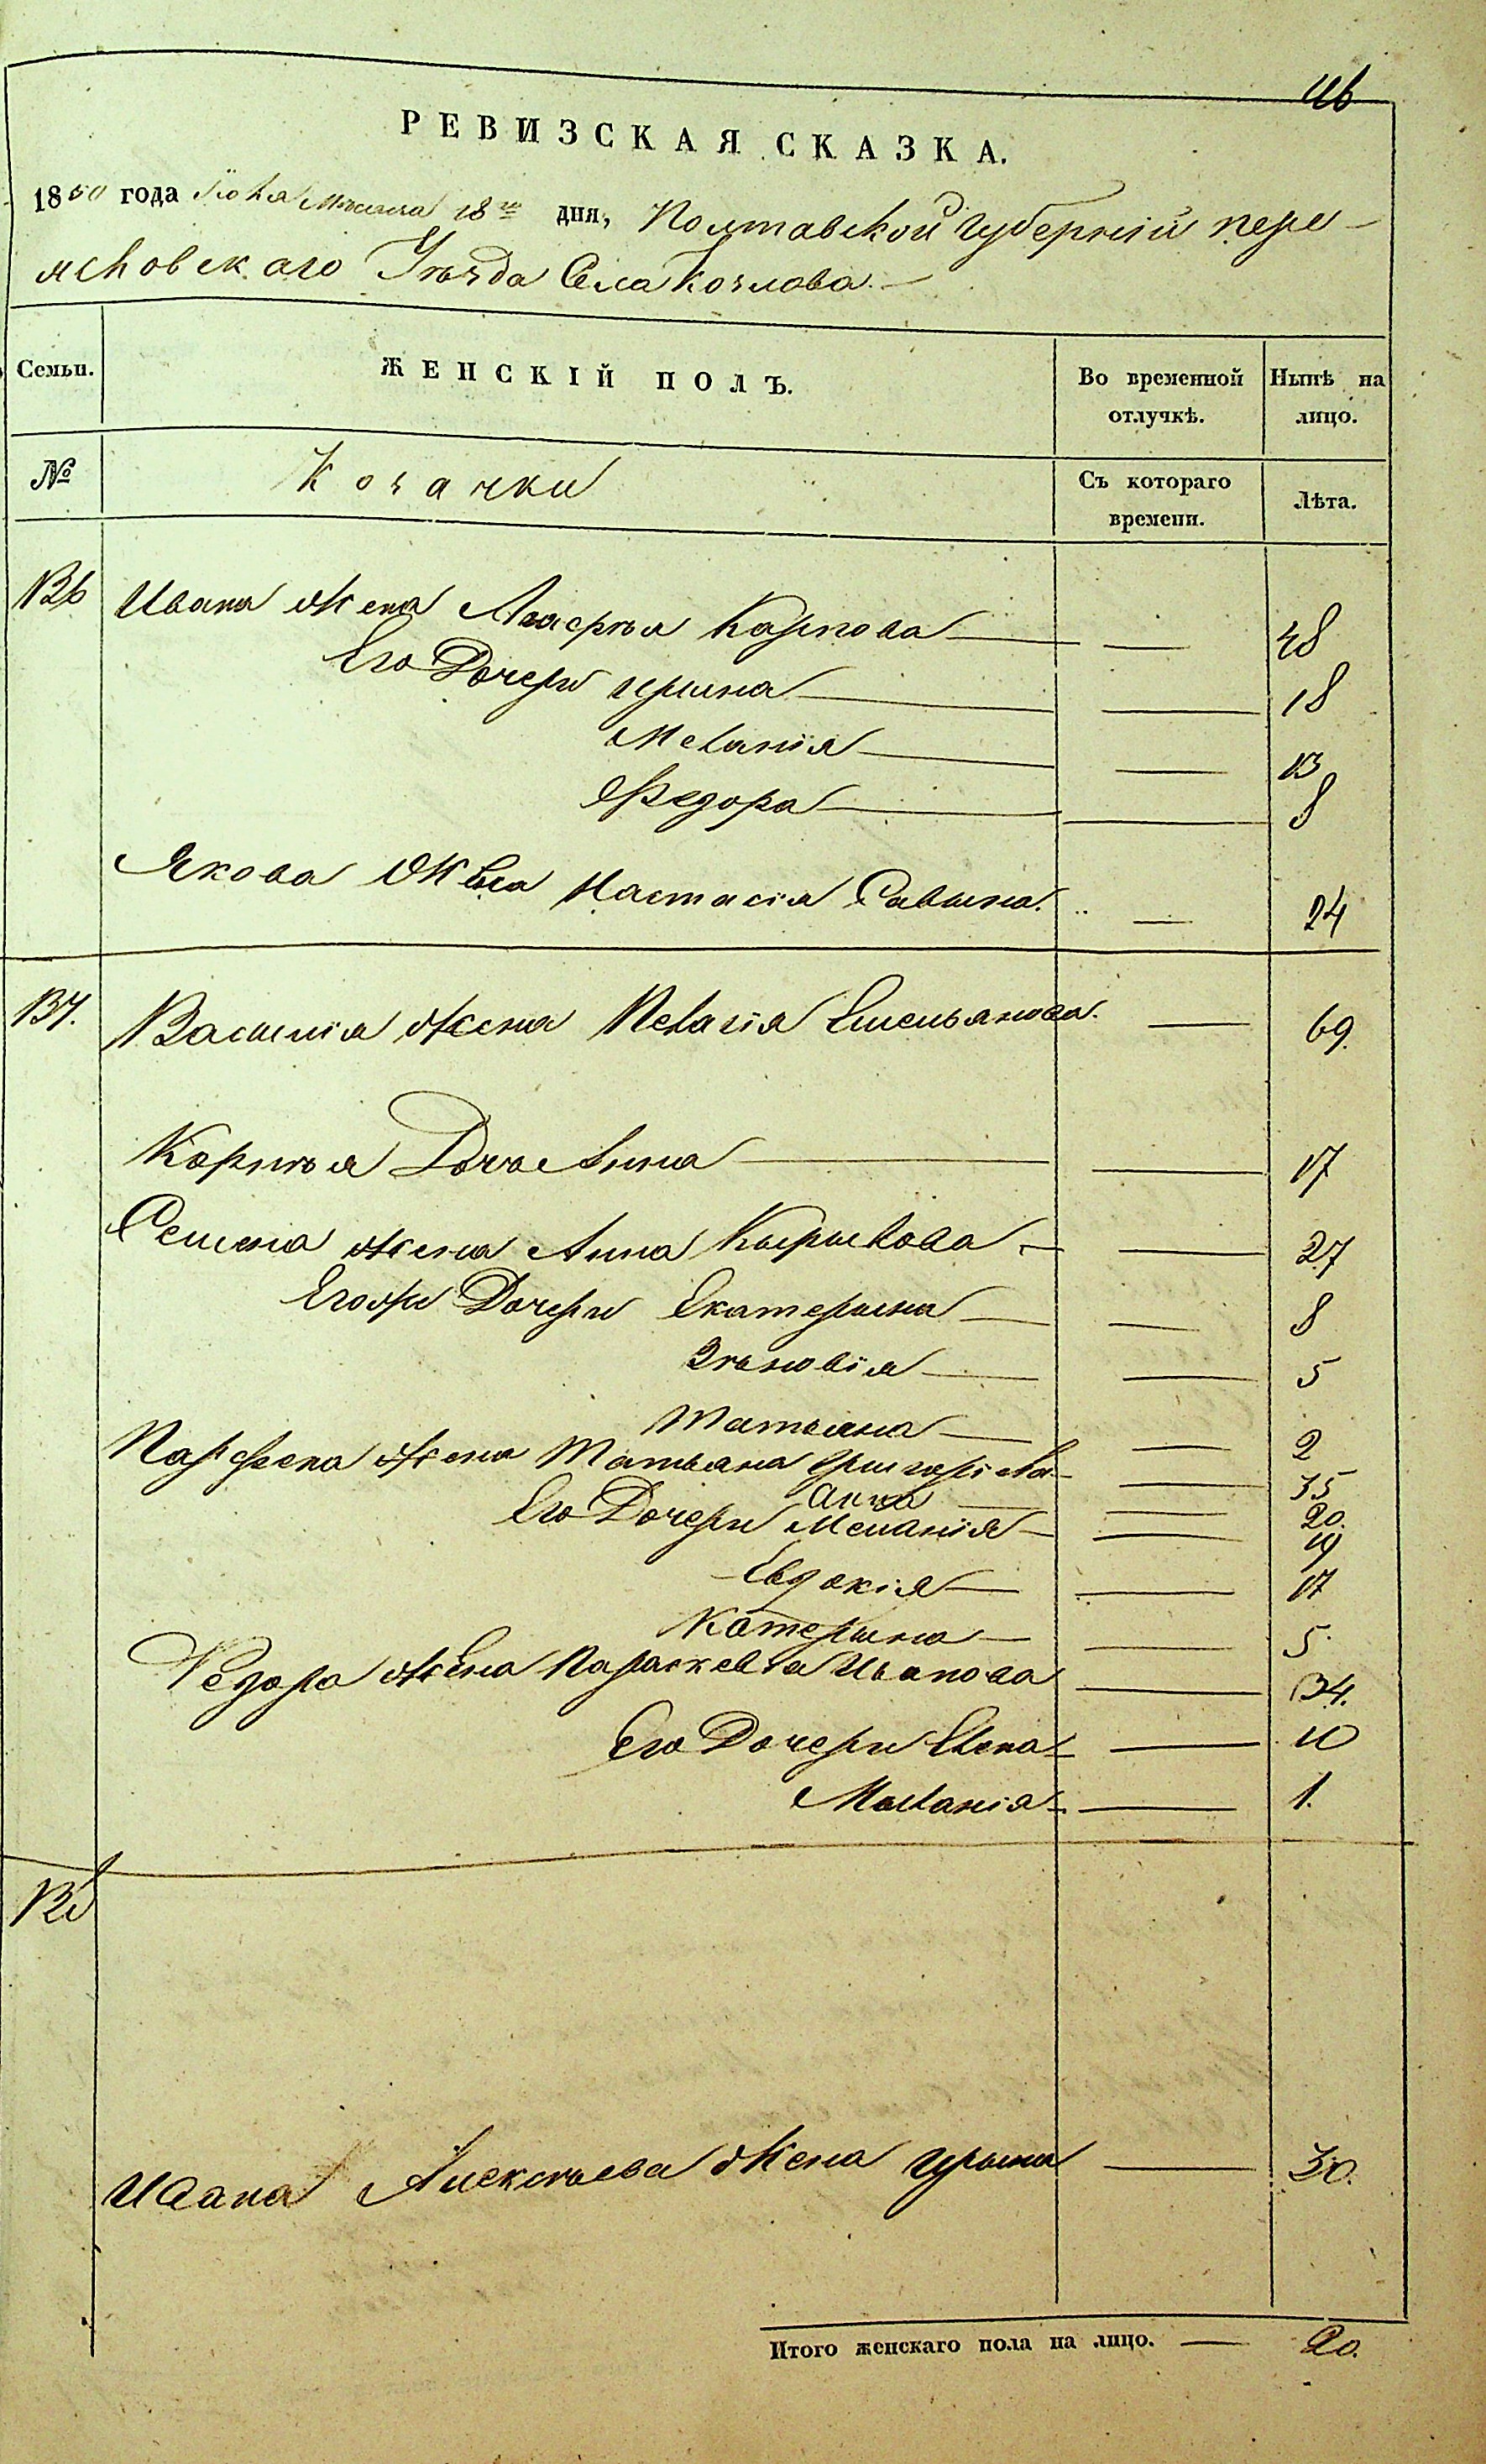 46
РЕВИЗСКАЯ СКАЗКА.
1850 года Июля Месяца 18го дня, Полтавской Губерніи пере-
ясловскаго Уѣзда Села Козлова.
Семьи. ЖЕНСКІЙ ПОЛЪ. Во временной отлучкѣ. Нынѣ на лицо.
№ Козачки Съ котораго времени. Лѣта.
136 Ивана Жена Агафія Карпова — 48
Его Дочери Ирина — 18
Меланія — 13
Федора — 8
Якова Жена Настасія Савина. — 24
137. Василія Жена Меланія Емельянова. — 69.
Корнѣя Дочь Анна — 17
Семена Жена Анна Кырылова — 27
Его Дочери Екатерына — 8
Зѣновія — 5
Татьяна — 2
Парфена Жена Татьяна Григорѣева — 35
Анна — 20.
Его Дочери Меланія — 19
Евдокія — 17
Катерына — 5.
Федора Жена Параскевія Иванова — 34.
Его Дочери Елена — 10
Маланія — 1.
138
Ивана Алексѣева Жена Ирына — 30.
Итого женскаго пола на лицо. — 20.